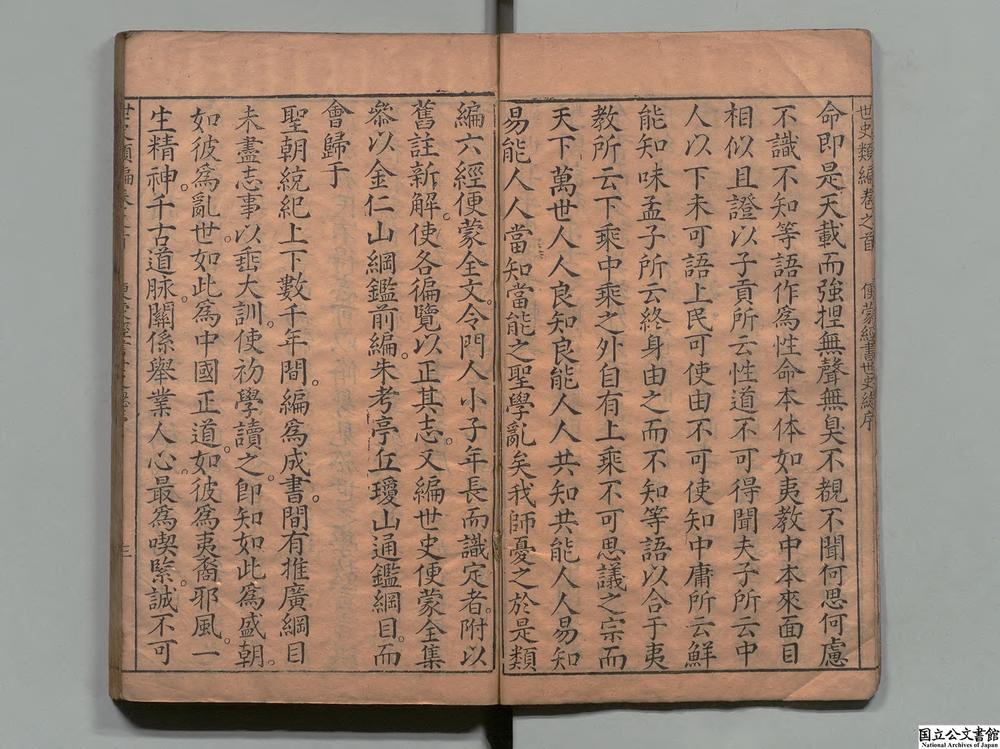 世史類編卷之首　便蒙經書世史總序
命即是天載而強揑無聲無臭不覩不聞何思何慮
不識不知等語作爲性命本体如夷教中本來面目
相似且證以子貢所云性道不可得聞夫子所云中
人以下未可語上民可使由不可使知中庸所云鮮
能知味孟子所云終身由之而不知等語以合于夷
教所云下乘中乘之外自有上乘不可思議之宗而
天下萬世人人良知良能人人共知共能人人易知
易能人人當知當能之聖學亂矣我師憂之於是類
編六經便蒙全文令門人小子年長而識定者附以
舊註新解使各徧覽以正其志又編世史便蒙全集
叅以金仁山綱鑑前編朱考亭丘瓊山通鑑綱目而
會歸于
聖朝統紀上下數千年間編爲成書間有推廣綱目
未盡志事以埀大訓使初學讀之卽知如此爲盛朝
如彼爲亂世如此爲中國正道如彼爲夷裔邪風一
生精神千古道脉關係舉業人心最爲喫緊誠不可
世史類編
三
国立公文書館
National Archives of Japan